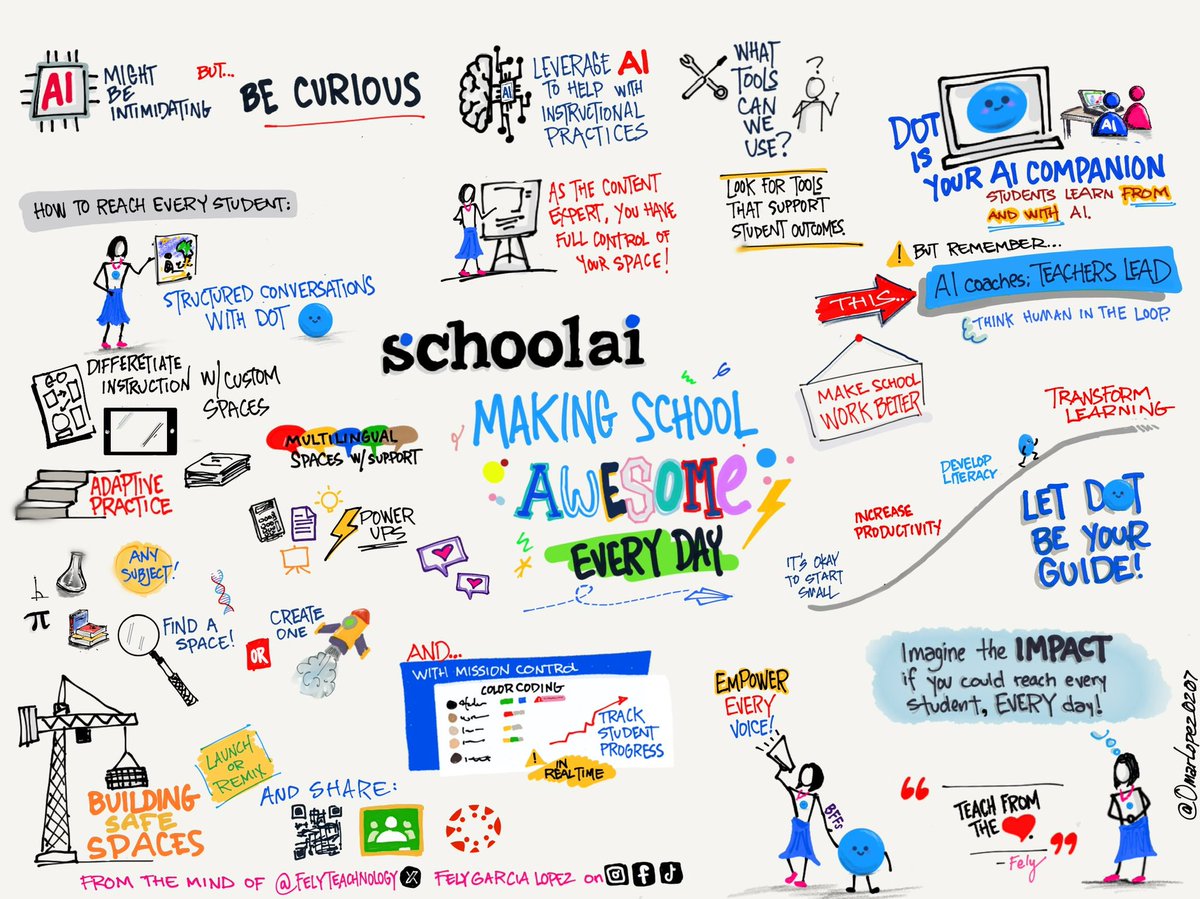 AI
MIGHT
BE
INTIMIDATING
BUT...
BE CURIOUS
AI
LEVERAGE AI
TO HELP WITH
INSTRUCTIONAL
PRACTICES
WHAT
TOOLS
CAN
WE
USE?
?
LOOK FOR TOOLS
THAT SUPPORT
STUDENT OUTCOMES.
AI
DOT
IS
YOUR AI COMPANION
STUDENTS LEARN FROM
AND WITH AI.
! BUT REMEMBER...
THIS..
AI coaches; TEACHERS LEAD
THINK HUMAN IN THE LOOP.
HOW TO REACH EVERY STUDENT:
STRUCTURED CONVERSATIONS
WITH DOT
AS THE CONTENT
EXPERT, YOU HAVE
FULL CONTROL OF
YOUR SPACE!
DIFFERETIATE
INSTRUCTION W/CUSTOM
SPACES
MULTILINGUAL
SPACES W/SUPPORT
ADAPTIVE
PRACTICE
POWER
UPS
ANY
SUBJECT!
π
FIND A
SPACE!
OR
CREATE
ONE
schoolai
MAKING SCHOOL
AWESOME
EVERY DAY
MAKE SCHOOL
WORK BETTER
TRANSFORM
LEARNING
DEVELOP
LITERACY
INCREASE
PRODUCTIVITY
IT'S OKAY
TO START
SMALL
LET DOT
BE YOUR
GUIDE!
AND...
WITH MISSION CONTROL
COLOR CODING
TRACK
STUDENT
PROGRESS
!
IN
REAL TIME
BUILDING
SAFE
SPACES
LAUNCH
OR
REMIX
AND SHARE:
EMPOWER
EVERY
VOICE!
BFFS
Imagine the IMPACT
if you could reach every
student, EVERY day!
“
TEACH FROM
THE
”
- Fely
@OmarLopez0207
FROM THE MIND OF @FELYTEACHNOLOGY X FELYGARCIA LOPEZ on